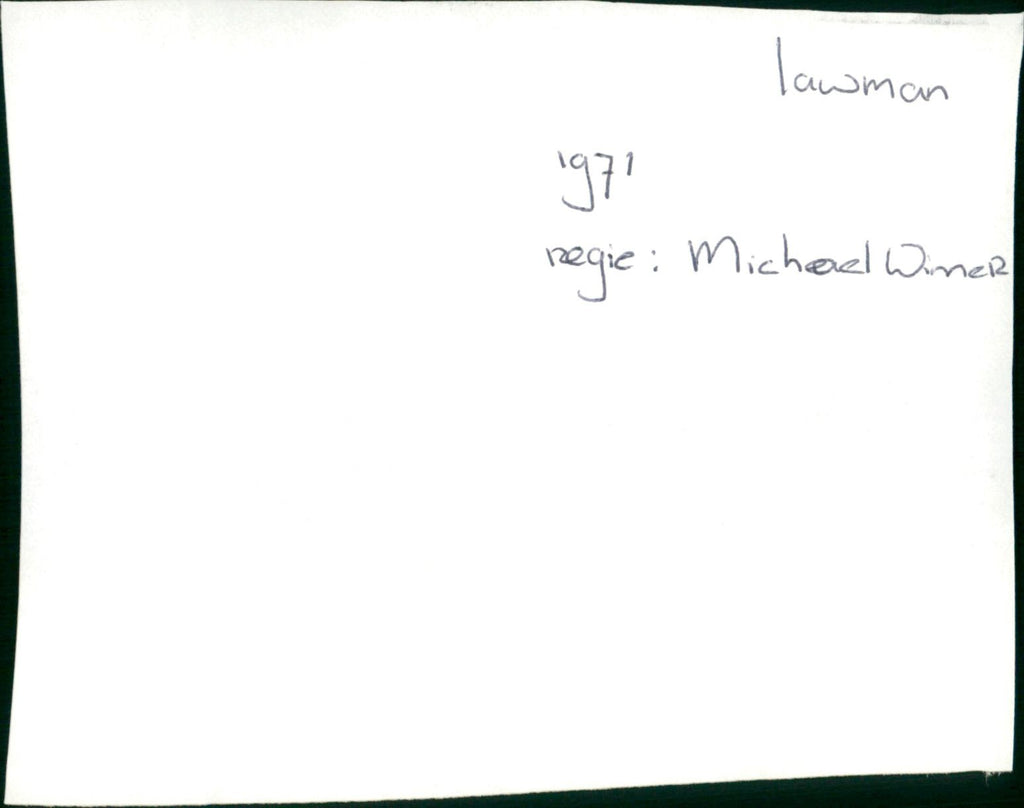 lawman
1971
regie: Michael Winner